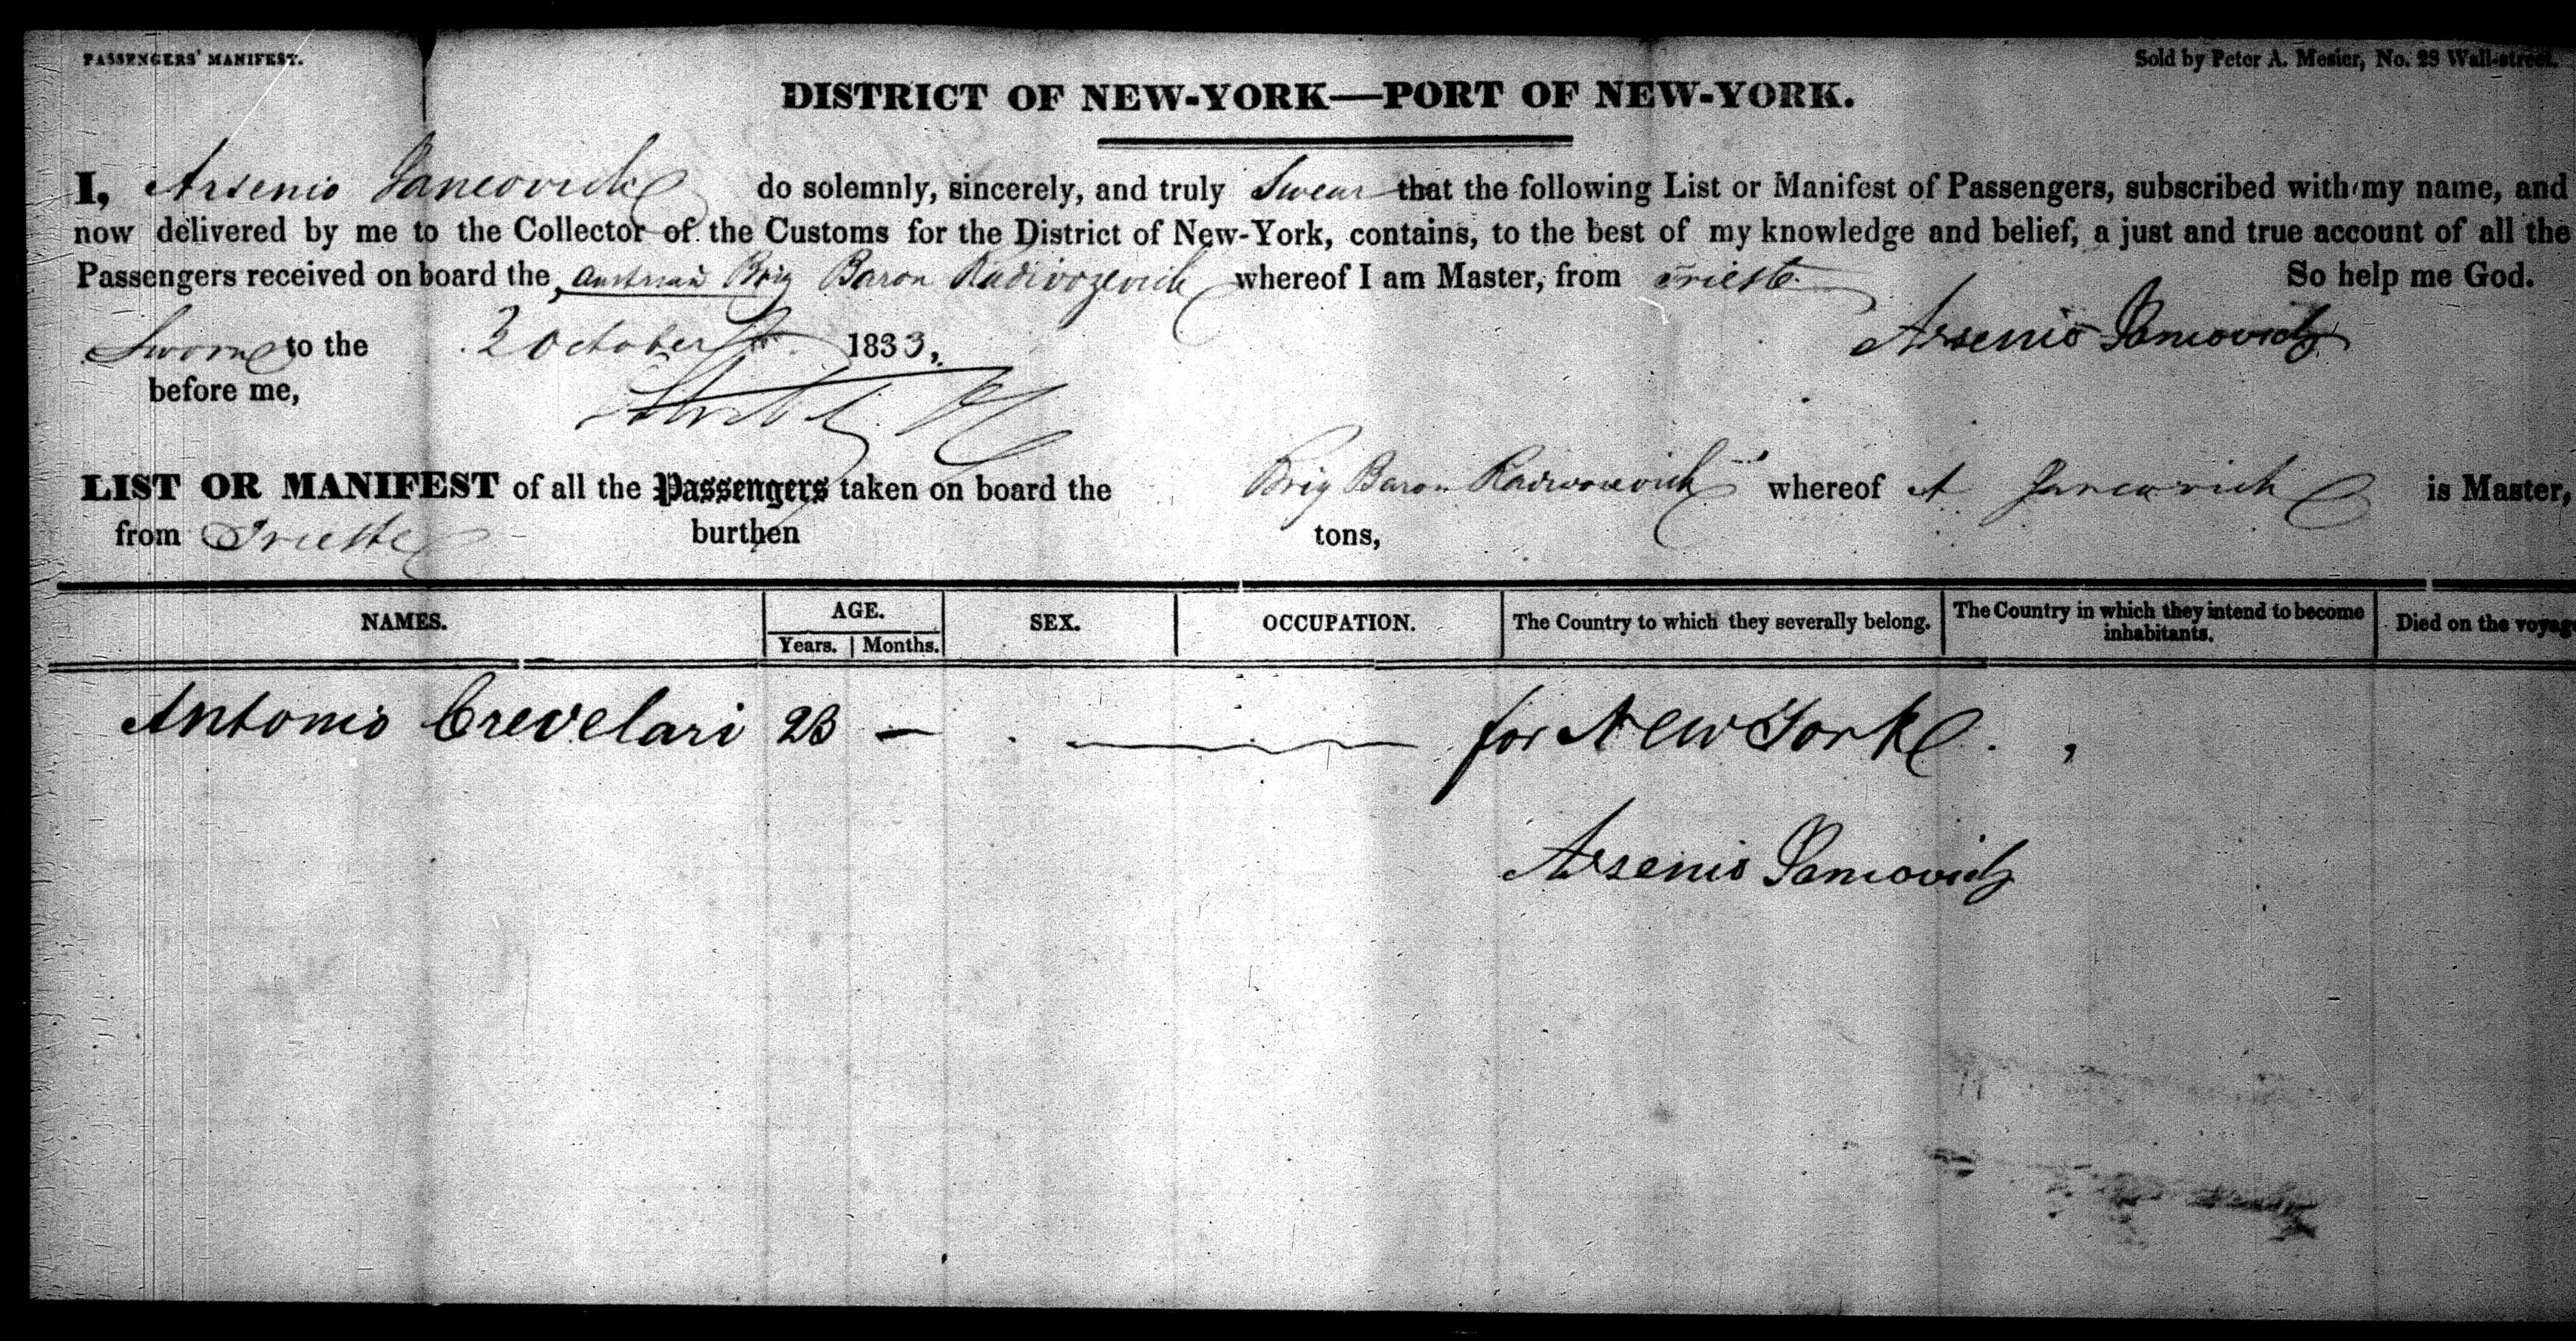 PASSENGERS' MANIFEST.
Sold by Peter A. Mesier, No. 28 Wall-street.
DISTRICT OF NEW-YORK—PORT OF NEW-YORK.
I, Arsenio Iancovich do solemnly, sincerely, and truly Swear that the following List or Manifest of Passengers, subscribed with my name, and
now delivered by me to the Collector of the Customs for the District of New-York, contains, to the best of my knowledge and belief, a just and true account of all the
Passengers received on board the, Austrian Brig Baron Radivozevich whereof I am Master, from Trieste So help me God.
Sworn to the 3 October 1833, Arsenio Iancovich
before me,
LIST OR MANIFEST of all the Passengers taken on board the Brig Baron whereof A Jancovich is Master,
from Trieste burthen tons,
NAMES. AGE. SEX. OCCUPATION. The Country to which they severally belong. The Country in which they intend to become inhabitants. Died on the voyage
Years. Months.
Antonio Crevelari 23 — for New York.
Arsenio Iancovich